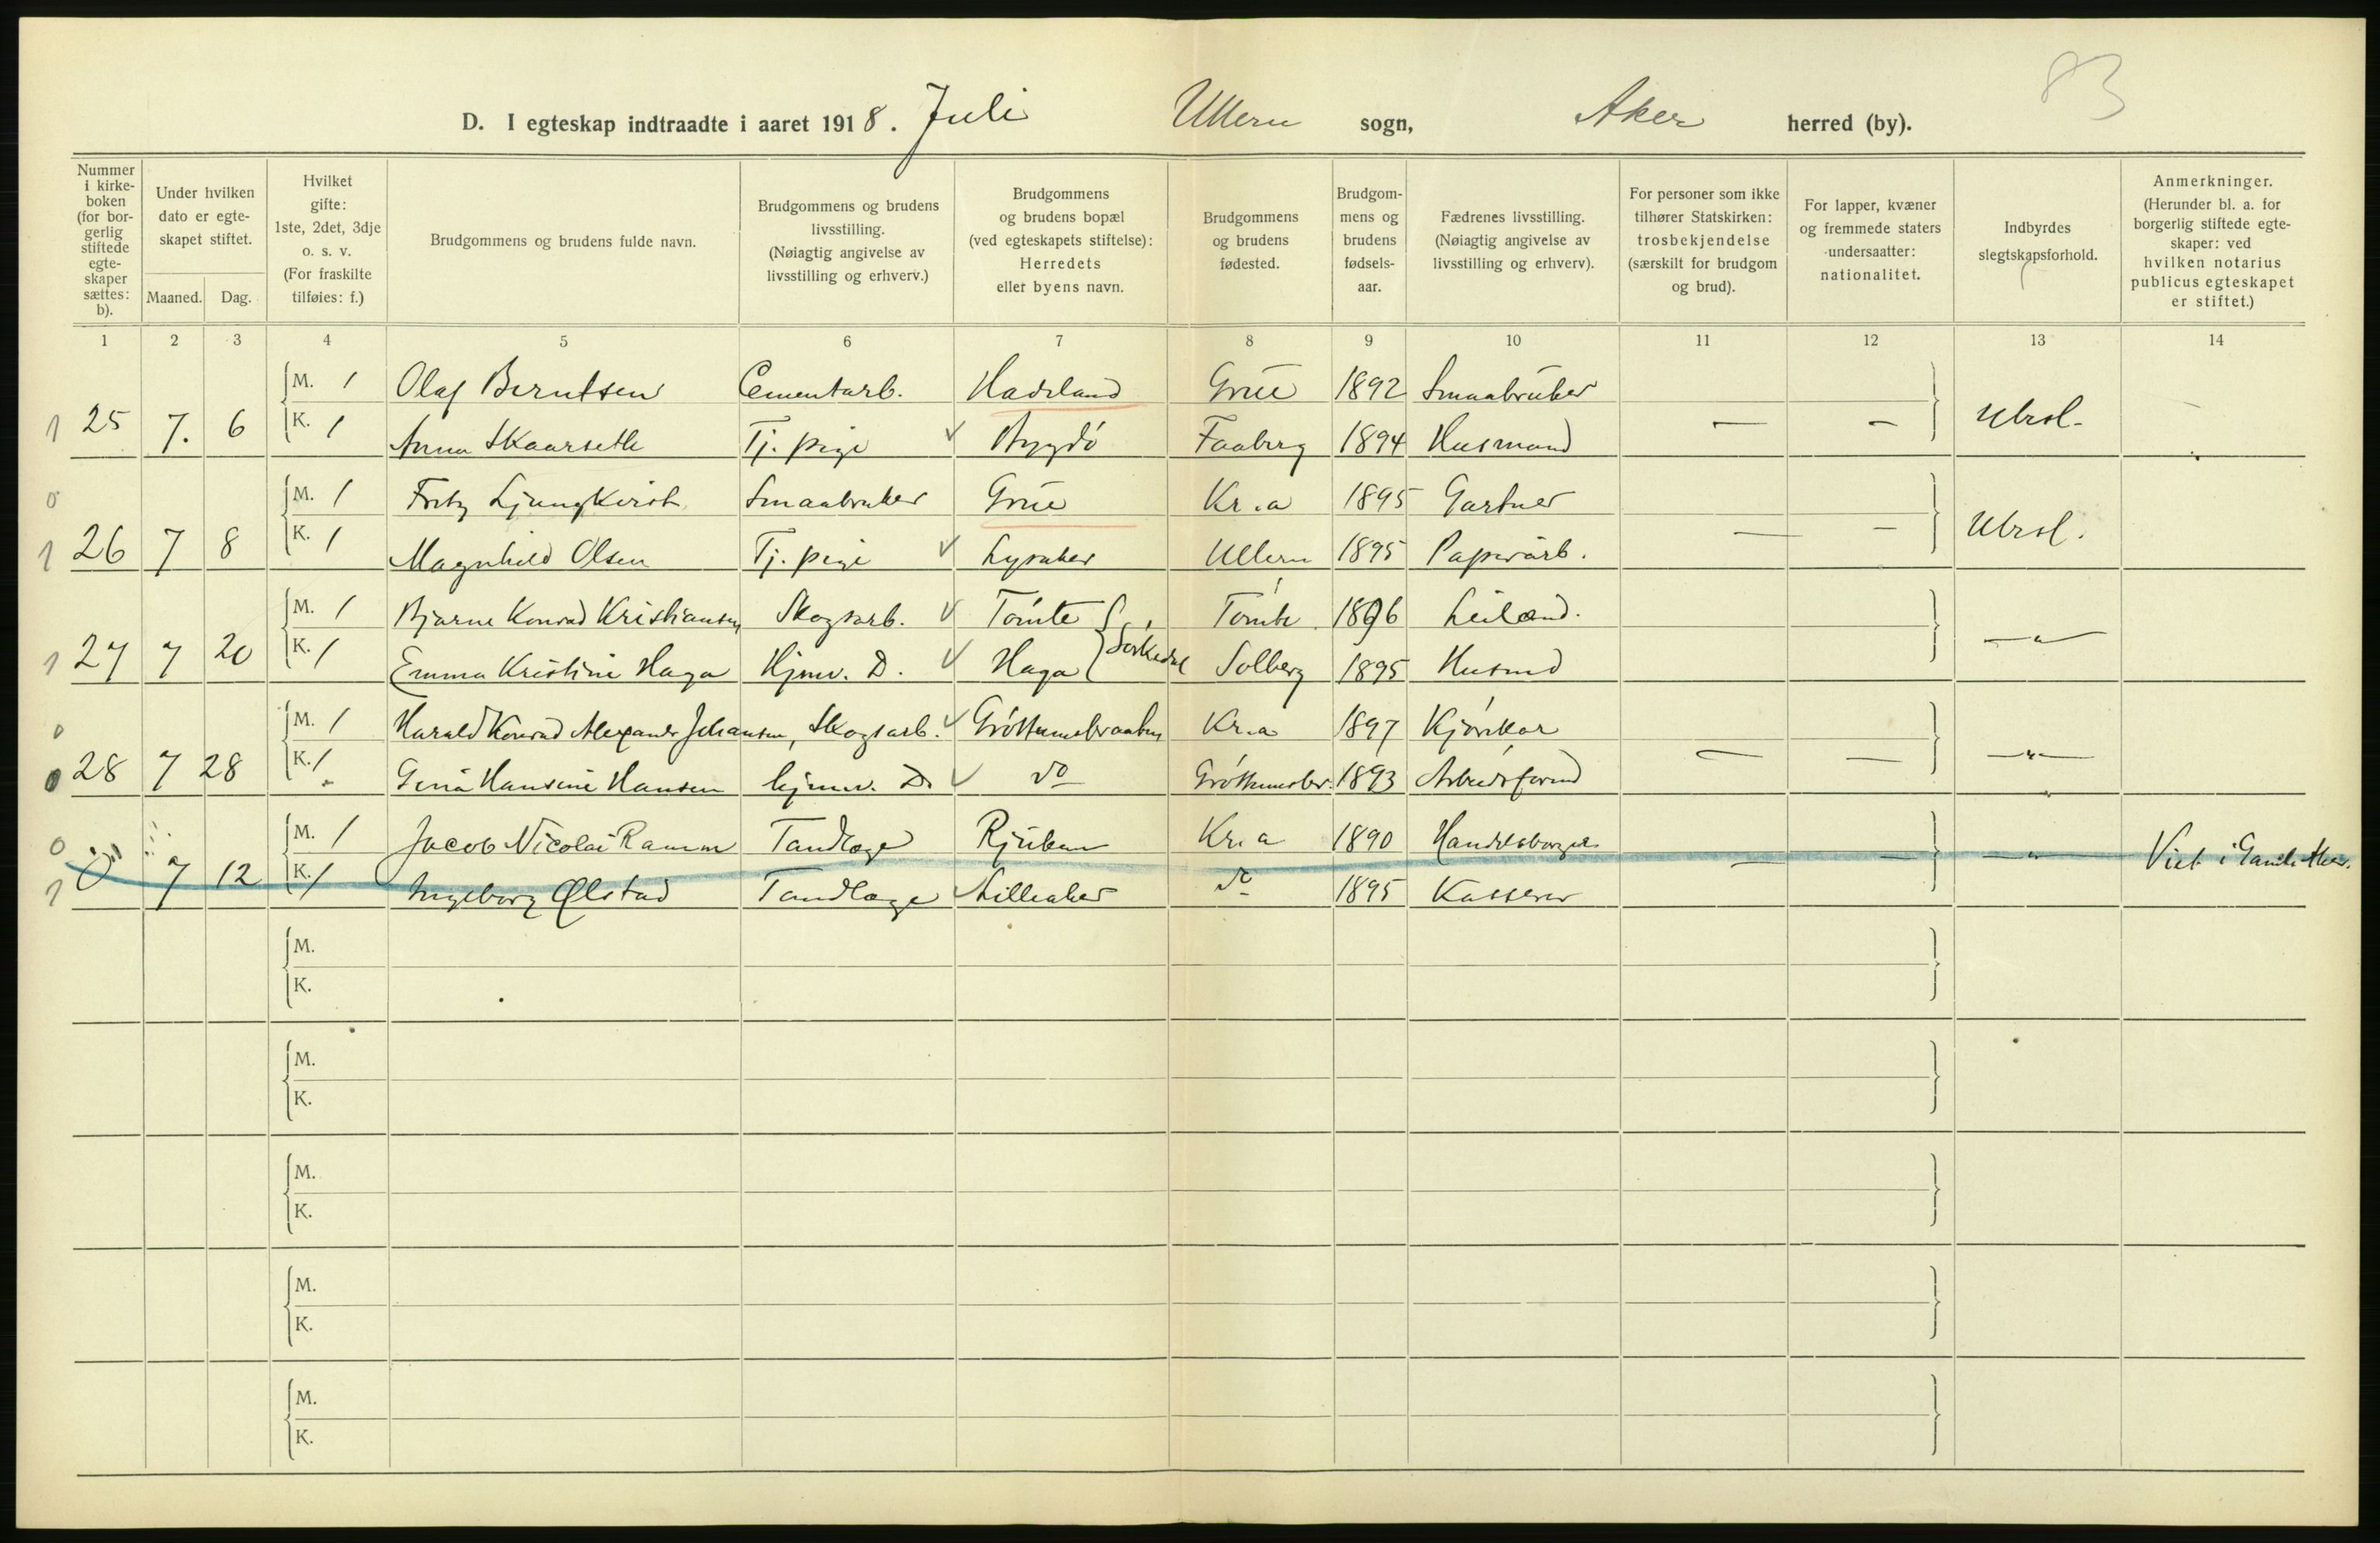 83
D. I egteskap indtraadte i aaret 1918. Juli Ullern sogn, Aker herred (by).
Nummer i kirke-boken (for bor-gerlig stiftede egte-skaper sættes: b).
Under hvilken dato er egte-skapet stiftet.
Maaned. Dag.
Hvilket gifte: 1ste, 2det, 3dje o. s. v. (For fraskilte tilføies: f.)
Brudgommens og brudens fulde navn.
Brudgommens og brudens livsstilling. (Nøiagtig angivelse av livsstilling og erhverv.)
Brudgommens og brudens bopæl (ved egteskapets stiftelse): Herredets eller byens navn.
Brudgommens og brudens fødested.
Brudgom-mens og brudens fødsels-aar.
Fædrenes livsstilling. (Nøiagtig angivelse av livsstilling og erhverv).
For personer som ikke tilhører Statskirken: trosbekjendelse (særskilt for brudgom og brud).
For lapper, kvæner og fremmede staters undersaatter: nationalitet.
Indbyrdes slegtskapsforhold.
Anmerkninger. (Herunder bl. a. for borgerlig stiftede egte-skaper: ved hvilken notarius publicus egteskapet er stiftet.)
1 2 3 4 5 6 7 8 9 10 11 12 13 14
M. 1 Olaf Berntsen Cementarb. Hadeland Grue 1892 Smaabruker
1 25 7. 6 K. 1 Anna Skaarseth Tj. pige Bygdö Faaberg 1894 Husmand — — Ubesl. —
0 M. 1 Fritz Ljungkvist Smaabruker Grue Kr.a 1895 Gartner
1 26 7 8 K. 1 Magnhild Olsen Tj. pige Lysaker Ullern 1895 Papirarb. — — Ubesl.
M. 1 Bjarne Konrad Kristiansen Skogsarb. Tömte Sörkedal Tömte 1896 Leilænd.
1 27 7 20 K. 1 Emma Kristine Haga Hjmv. D. Haga Solberg 1895 Husmd — " —
0 M. 1 Harald Konrad Alexander Johansen, Skogsarb. Gröttumsbraaten Kr.a 1897 Kjörekar
0 28 7 28 K. 1 Gina Hansine Hansen hjmv. D. do Gröttumsbr. 1893 Arbeidsformd — — — " —
0 M. 1 Jacob Nicolai Ramm Tandlæge Rjukan Kr.a 1890 Handelsborger
1 "0" 7 12 K. 1 Ingeborg Ølstad Tandlæge Lilleaker do 1895 Kasserer — — — " — Viet i Gamle Aker.
M.
K.
M.
K.
M.
K.
M.
K.
M.
K.